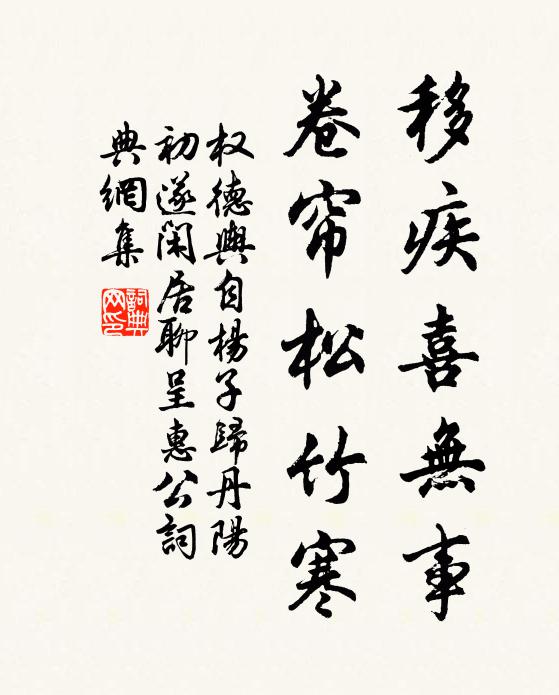 移疾喜無事
卷帘松竹寒
权德輿自楊子歸丹陽
初遂閑居聊呈惠公詞
典網集
詞典网印